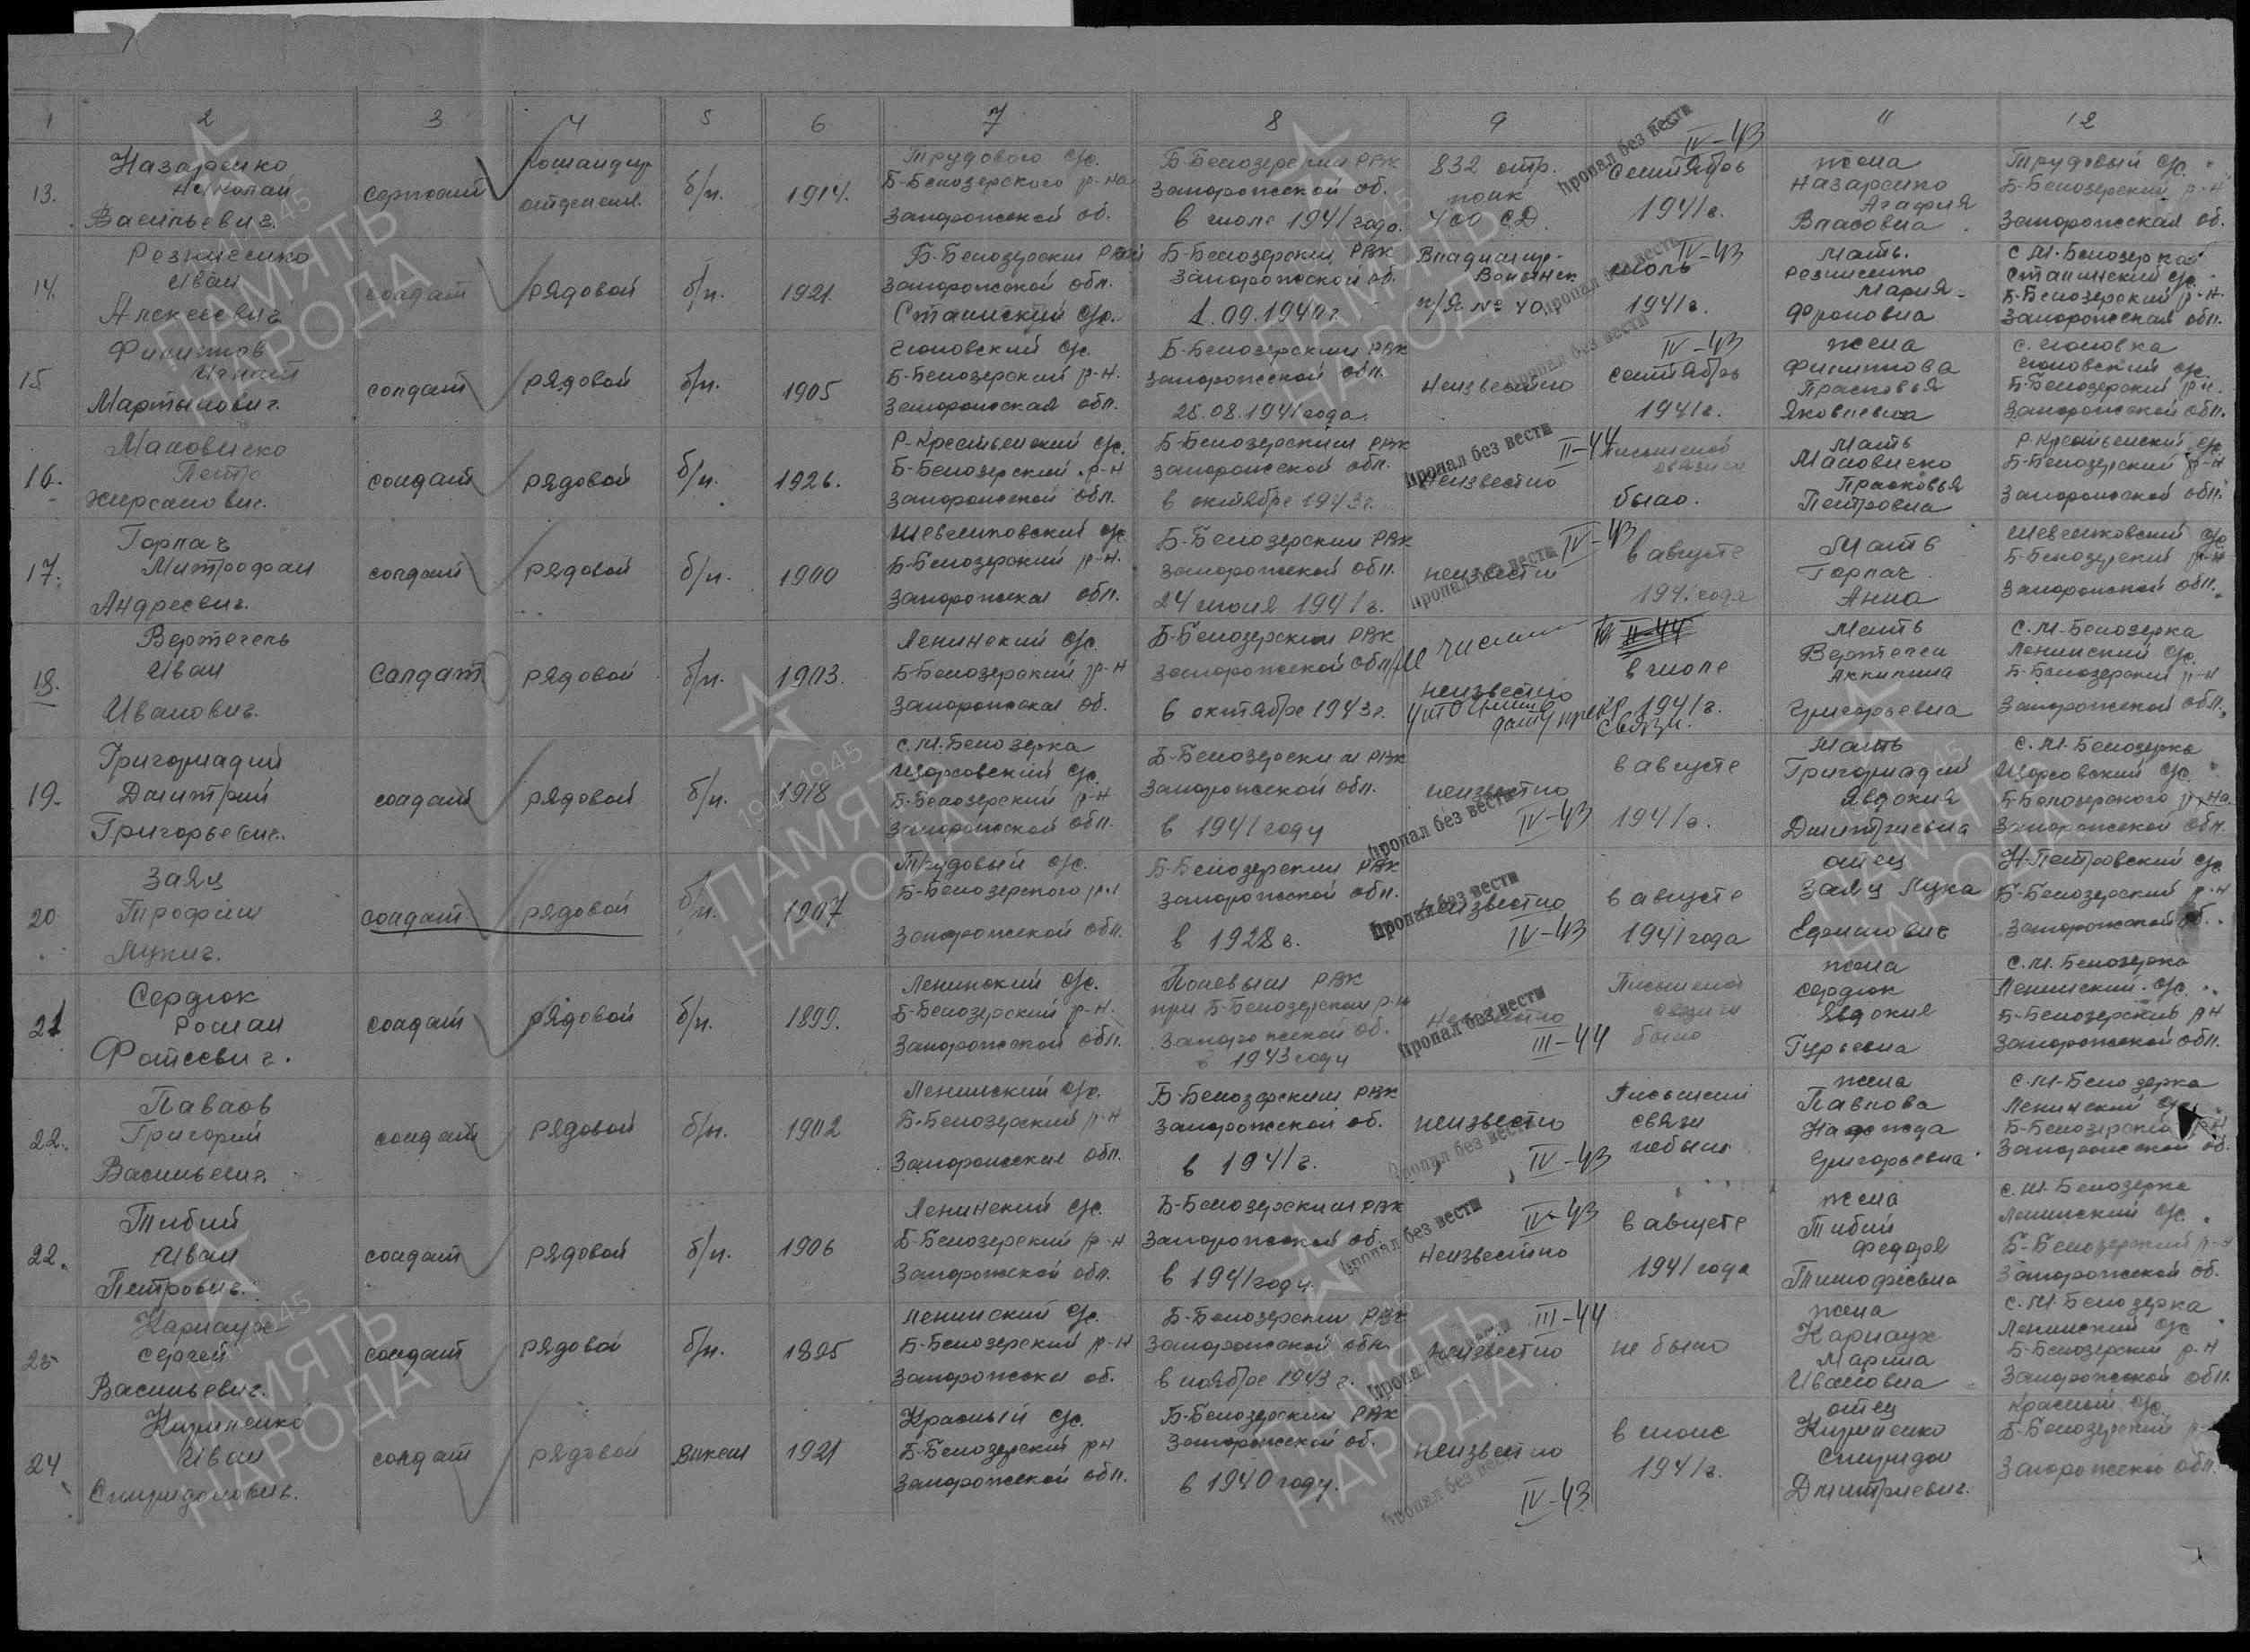 1 2 3 4 5 6 7 8 9 10 11 12
13.
Назаренко
Николай
Васильевич.
сержант
командир
отделен.
б/п.
1914.
Трудового с/с.
Б-Белозерского р-на
Запорожской об.
Б-Белозерским РВК
Запорожской об.
в июле 1941 года.
832 отр.
полк
400 СД.
пропал без вести
IV-43
сентябрь
1941 г.
жена
Назаренко
Агафия
Власовна.
Трудовый с/с.
Б-Белозерский р-н
Запорожская об.
14.
Резниченко
Иван
Алексеевич
солдат
рядовой
б/п.
1921.
Б-Белозерский район
Запорожской обл.
Сталинский с/с.
Б-Белозерским РВК
Запорожской об.
1.09.1940 г.
Владимир-
Волынск
п/я № 40.
пропал без вести
IV-43
июль
1941 г.
мать.
Резниченко
Мария
Фроловна
с М-Белозерка
Сталинский с/с.
Б-Белозерский р-н.
Запорожская обл.
15
Филиппов
Игнат
Мартынович.
солдат
рядовой
б/п.
1905
Б-Белозерский р-н.
Запорожская обл.
Б-Белозерским РВК
Запорожской обл.
25.08.1941 года.
неизвестно
пропал без вести
IV-43
сентябрь
1941 г.
жена
Филиппова
Прасковья
Яковлевна
Б-Белозерский р-н.
Запорожской обл.
16.
Маловичко
Петр
Хирсанович.
солдат
рядовой
б/п.
1926.
Р-Крестьянский с/с.
Б-Белозерский р-н
Запорожской обл.
Б-Белозерским РВК
Запорожской обл.
в октябре 1943 г.
пропал без вести
неизвестно
II-44
Письменой
связи не
было.
Мать
Маловичко
Прасковья
Петровна
Р. Крестьянский с/с.
Б-Белозерский р-н
Запорожской обл.
17.
Горпач
Митрофан
Андреевич.
солдат
рядовой
б/п.
1900
Шевченковский с/с.
Б-Белозерский р-н.
Запорожская обл.
Б-Белозерским РВК
Запорожской обл.
24 июня 1941 г.
неизвестно
пропал без вести
IV-43
в августе
1941 года
Мать
Горпач
Анна
Шевченковский с/с
Б-Белозерский р-н
Запорожской обл.
18.
Вертегель
Иван
Иванович.
Солдат
рядовой
б/п.
1903.
Ленинский с/с.
Б-Белозерский р-н
Запорожская об.
Б-Белозерским РВК
Запорожской обл.
6 октября 1943 г.
неизвестно
уточнить
дату прекр.
связи.
II-44
в июле
1941 г.
Мать
Вертегел
Акилина
Григорьевна
С. М-Белозерка
Ленинский с/с.
Б-Белозерский р-н
Запорожской обл.
19.
Григориадий
Дмитрий
Григорьевич.
солдат
рядовой
б/п.
1918
с. М-Белозерка
Щорсовский с/с.
Б-Белозерский р-н
Запорожской обл.
Б-Белозерским РВК
Запорожской обл.
в 1941 году
неизвестно
пропал без вести
IV-43
в августе
1941 г.
Мать
Григориадий
Явдокия
Дмитриевна
С. М-Белозерка
Щорсовский с/с.
Б-Белозерского р-на.
Запорожской обл.
20
Заяц
Трофим
Лукич.
солдат
рядовой
б/п.
1907
Трудовый с/с.
Б-Белозерского р-н
Запорожской обл.
Б-Белозерским РВК
Запорожской обл.
в 1928 г.
неизвестно
пропал без вести
IV-43
в августе
1941 года
отец
Заяц Лука
Н-Петровский с/с
Б-Белозерский р-н
Запорожской об.
21
Сердюк
Роман
Фотеевич.
солдат
рядовой
б/п.
1899.
Ленинский с/с.
Б-Белозерский р-н.
Запорожской обл.
Полевым РВК
при Б-Белозерском р-н
Запорожской об.
в 1943 году
неизвестно
пропал без вести
III-44
Письменой
связи не
было
жена
Сердюк
Явдокия
Гурьевна
С. М. Белозерка
Ленинский с/с.
Б-Белозерский р-н
Запорожской обл.
22.
Павлов
Григорий
Васильевич.
солдат
рядовой
б/п.
1902
Ленинский с/с.
Б-Белозерский р-н
Запорожская обл.
Б-Белозерским РВК
Запорожской об.
в 1941 г.
неизвестно
пропал без вести
IV-43
Письмен
связи
небыло
жена
Павлова
Надежда
Григорьевна
С. М-Белозерка
Ленинский с/с.
Б-Белозерский р-н
Запорожской об.
22.
Тибий
Иван
Петрович.
солдат
рядовой
б/п.
1906
Ленинский с/с.
Б-Белозерский р-н
Запорожской обл.
Б-Белозерским РВК
Запорожской об.
в 1941 году.
пропал без вести
неизвестно
IV-43
в августе
1941 года
жена
Тибий
Федора
Тимофеевна
с. М-Белозерка
Ленинский с/с.
Б-Белозерский р-н
Запорожской об.
23
Карнаух
Сергей
Васильевич.
солдат
рядовой
б/п.
1895
Ленинский с/с.
Б-Белозерский р-н
Запорожская об.
Б-Белозерским РВК
Запорожской обл.
в ноябре 1943 г.
неизвестно
пропал без вести
III-44
не было
жена
Карнаух
Марина
Ивановна
с. М-Белозерка
Ленинский с/с
Б-Белозерский р-н
Запорожской обл.
24
Кириленко
Иван
Спиридонович.
солдат
рядовой
1921
Красный с/с.
Б-Белозерский р-н
Запорожской обл.
Б-Белозерским РВК
Запорожской об.
в 1940 году.
неизвестно
пропал без вести
IV-43
в июле
1941 г.
отец
Кириленко
Спиридон
Дмитриевич.
Красный с/с.
Б-Белозерский р-н
Запорожской обл.
1941-1945
ПАМЯТЬ
НАРОДА